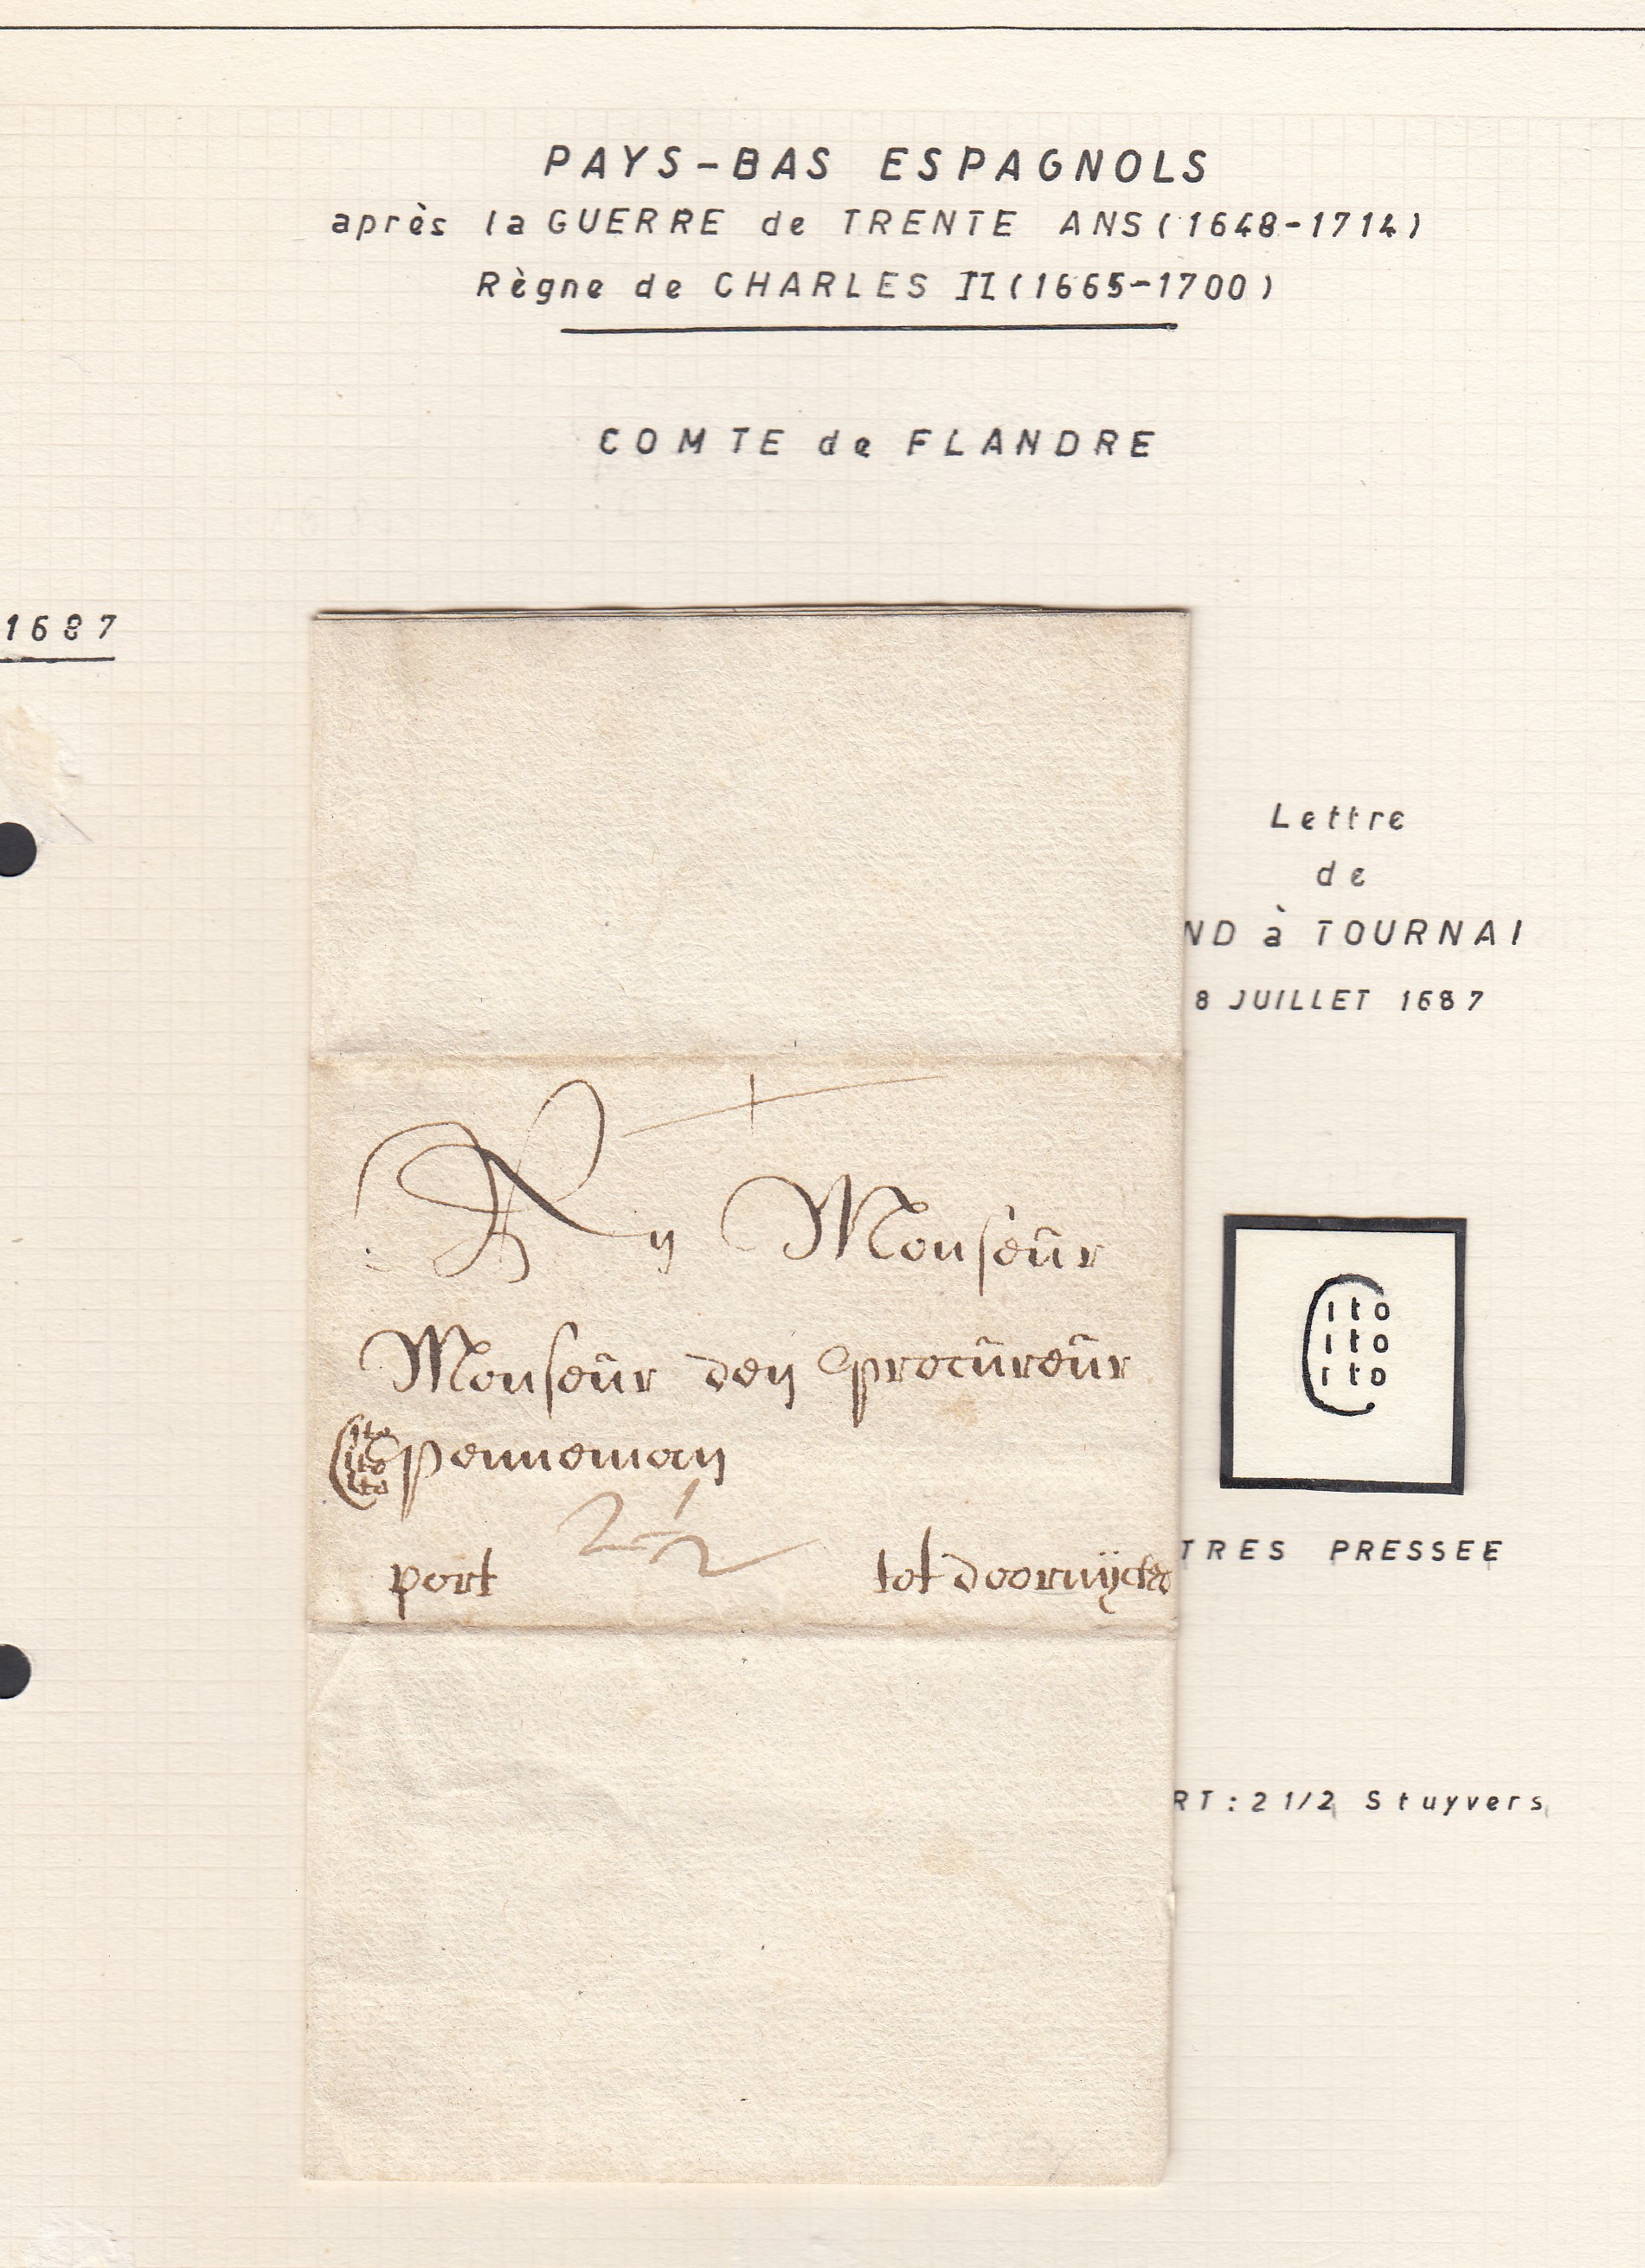 PAYS-BAS ESPAGNOLS
après la GUERRE de TRENTE ANS (1648-1714)
Règne de CHARLES II (1665-1700)
COMTE de FLANDRE
1687
Lettre
de
ND à TOURNAI
8 JUILLET 1687
Monseur
Monseur den procureur
Cito
ito
ito
penneman
port 2 1/2 tot doornijcke
Cito
ito
ito
TRES PRESSEE
RT: 2 1/2 Stuyvers